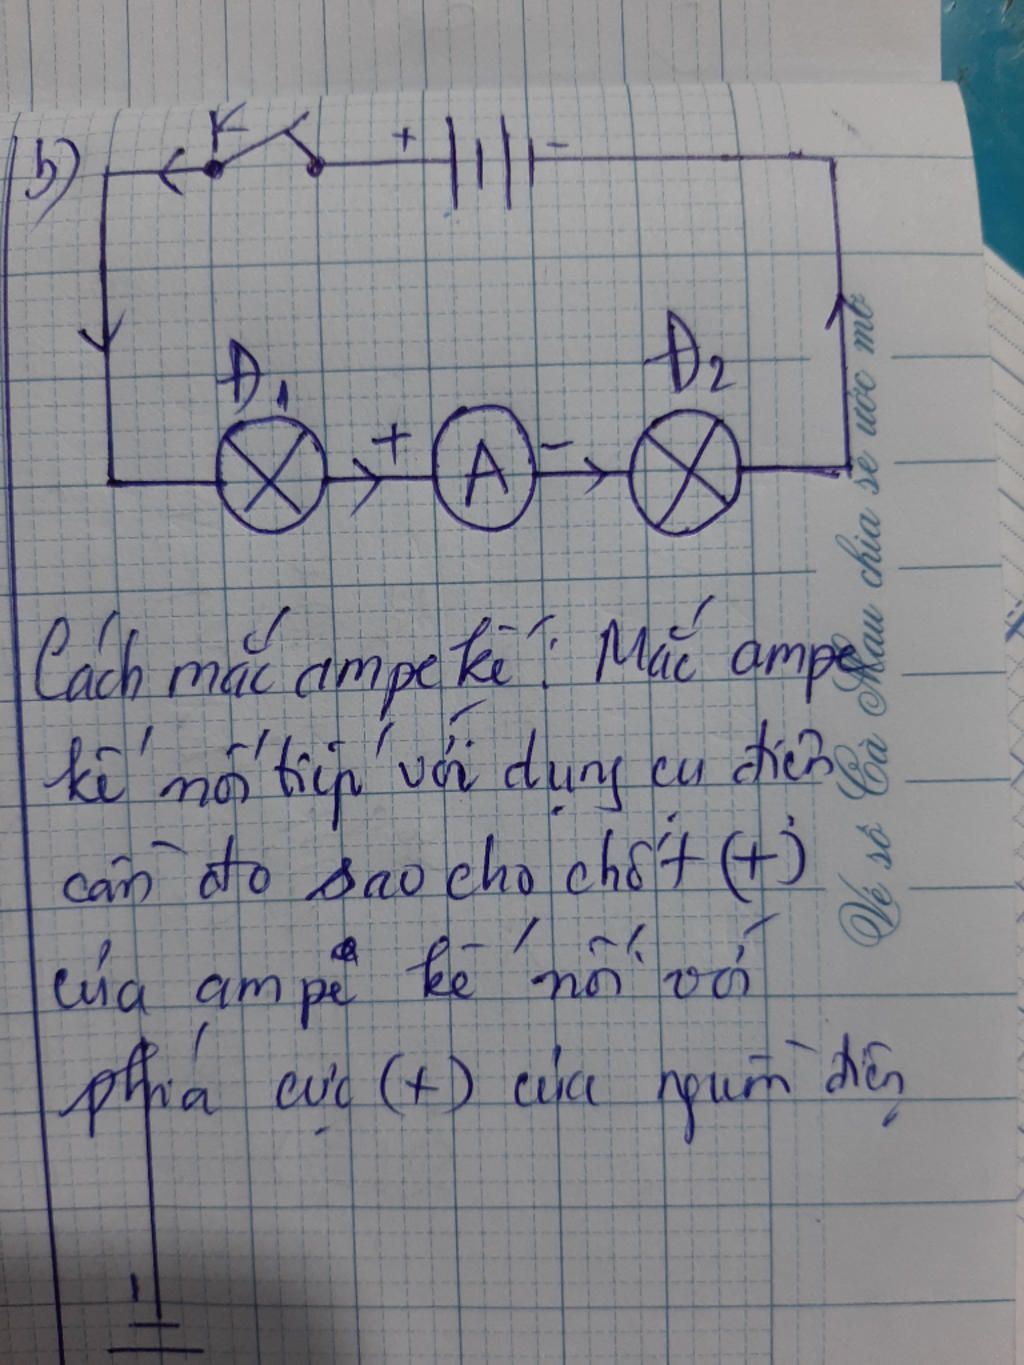 b)
K
+ -
Đ1
Đ2
+ A -
Cách mắc ampe kế: Mắc ampe
kế nối tiếp với dụng cụ điện
cần đo sao cho chốt (+)
của ampe kế nối với
phía cực (+) của nguồn điện
Vé số Cà Mau chia sẻ ước mơ